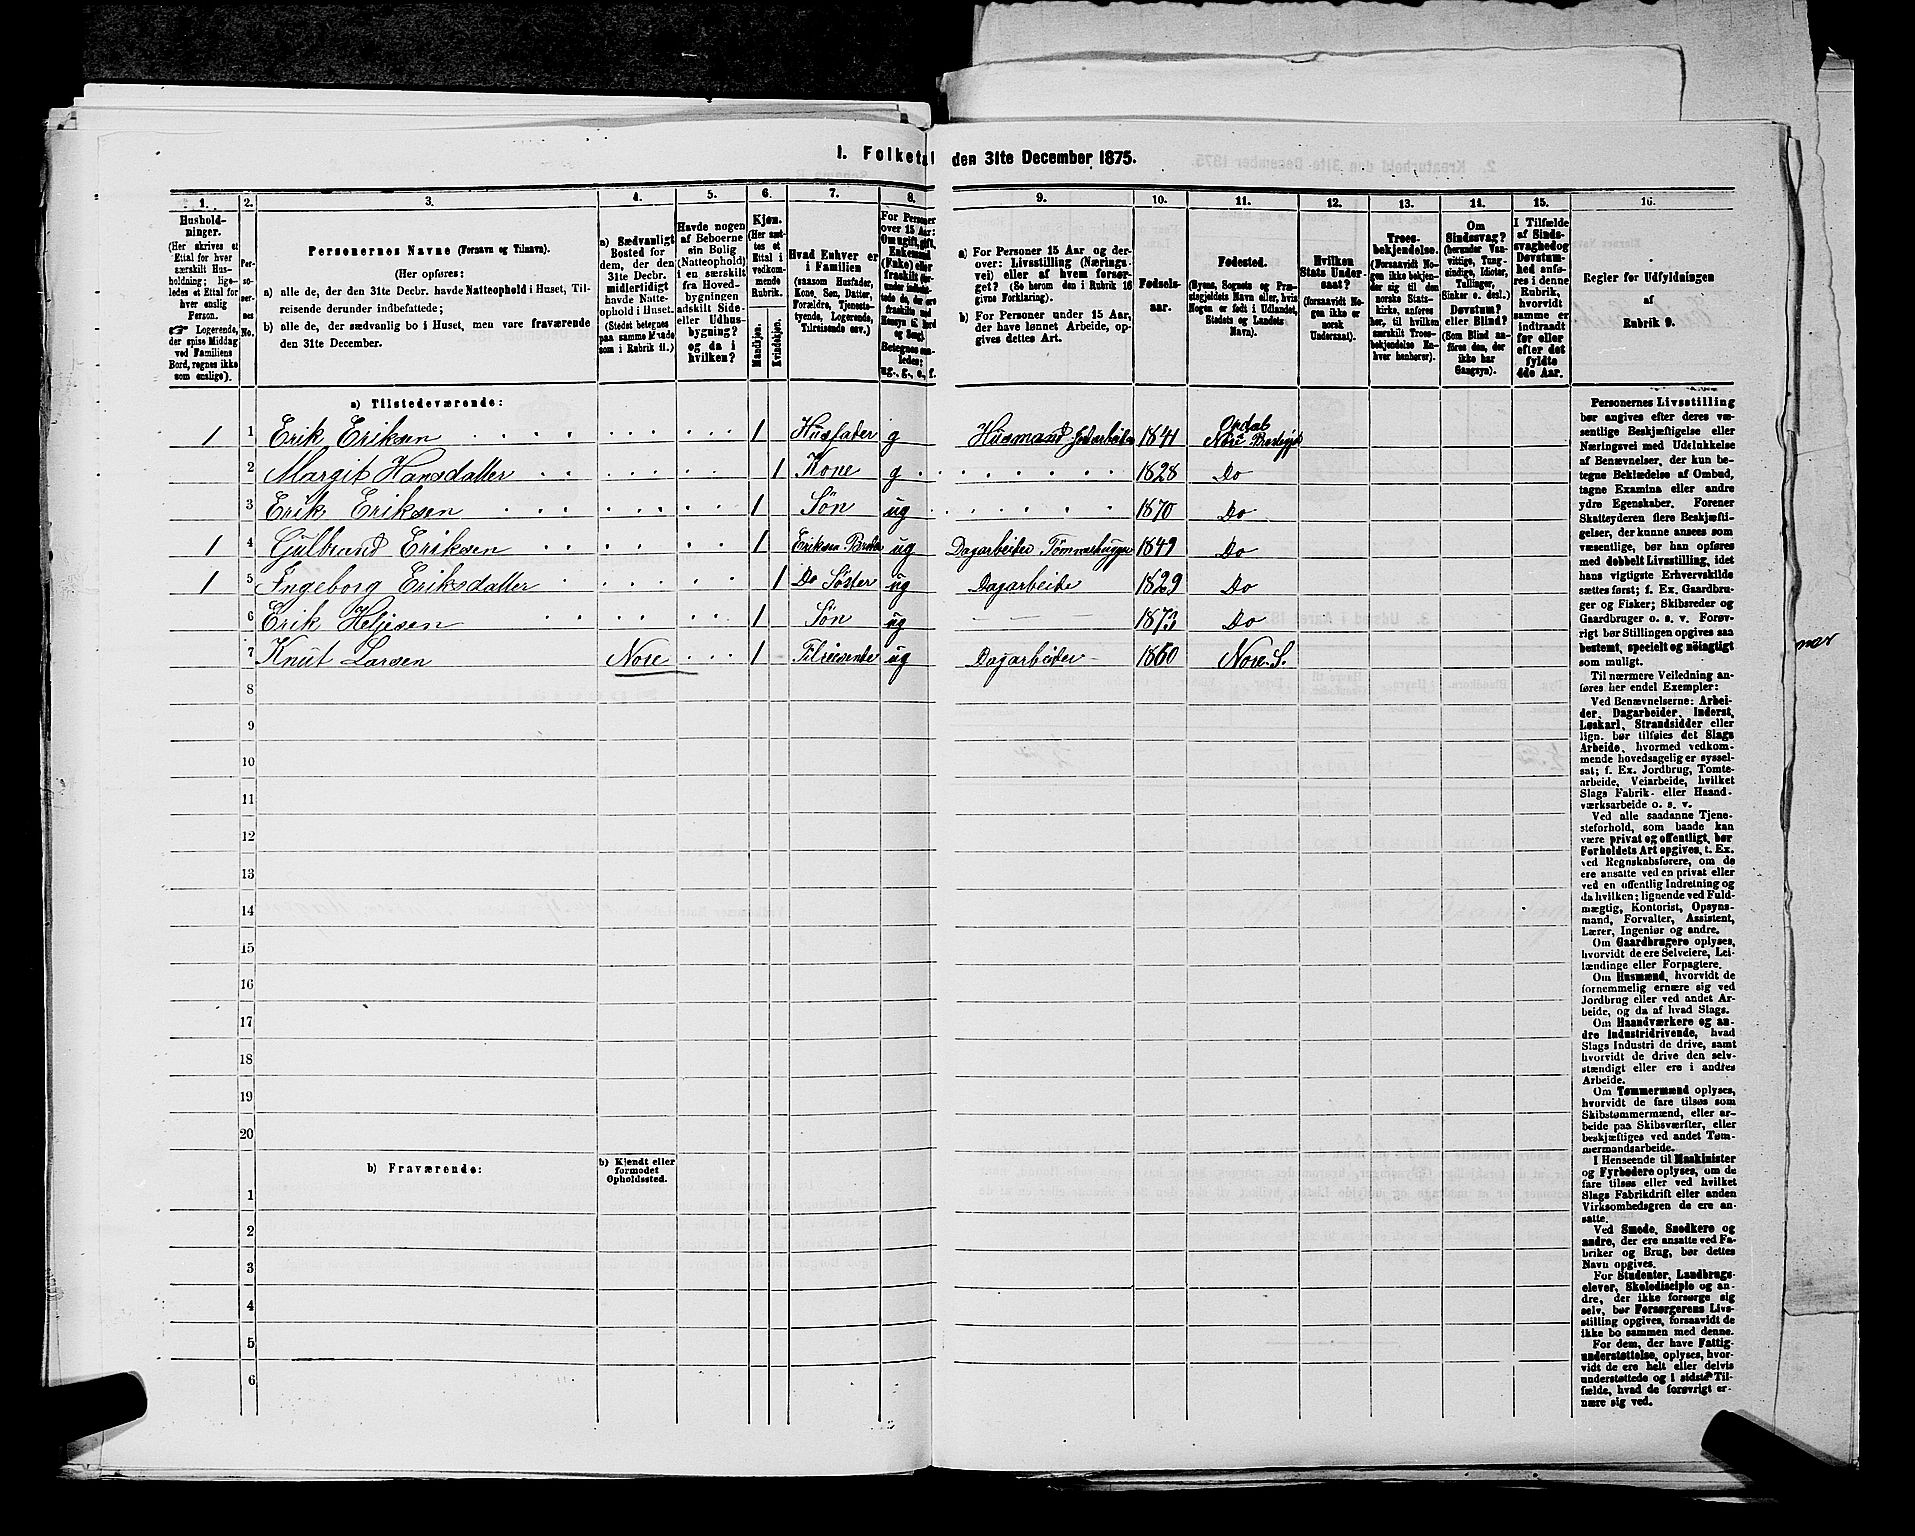 1. Folketal den 31te December 1875.
1. 2. 3. 4. 5. 6. 7. 8. 9. 10. 11. 12. 13. 14. 15. 16.
Hushold-
ninger.
(Her skrives et
Ettal for hver
særskilt Hus-
holdning; lige-
ledes et Ettal for
hver enslig
Person.
☞ Logerende,
der spise Middag
ved Familiens
Bord, regnes ikke
som enslige).
Per-
soner-
nes
No.
Personernes Navne (Fornavn og Tilnavn).
(Her opføres:
a) alle de, der den 31te Decbr. havde Natteophold i Huset, Til-
reisende derunder indbefattede;
b) alle de, der sædvanlig bo i Huset, men vare fraværende
den 31te December.
a) Sædvanligt
Bosted for
dem, der den
31te Decbr.
midlertidigt
havde Natte-
ophold i Huset.
(Stedet betegnes
paa samme Maade
som i Rubrik 11.)
Havde nogen
af Beboerne
sin Bolig
(Natteophold)
i en særskilt
fra Hoved-
bygningen
adskilt Side-
eller Udhus-
bygning?
og da i
hvilken?
Kjøn.
(Her sæt-
tes et
Ettal i
vedkom-
mende
Rubrik.
Mandkjøn.
Kvindekjøn.
Hvad Enhver er
i Familien
(saasom Husfader,
Kone, Søn, Datter,
Forældre, Tjeneste-
tyende, Logerende,
Tilreisende osv.)
For Personer
over 15 Aar:
Om ugift, gift,
Enkemand
(Enke) eller
fraskilt
Betegnes saa-
ledes:
ug., g., e., f.
a) For Personer 15 Aar og der-
over: Livsstilling (Nærings-
vei) eller af hvem forsør-
get? (Se herom den i Rubrik 16
givne Forklaring).
b) For Personer under 15 Aar,
der have lønnet Arbeide, op-
gives dettes Art.
Fødsels-
aar.
Fødested.
(Byens, Sognets og Præ-
stegjeldets Navn eller, hvis
Nogen er født i Udlandet,
Stedets og Landets
Navn).
Hvilken
Stats Under-
saat?
(forsaavidt No-
gen ikke er
norsk
Undersaat).
Troes-
bekjendelse.
(Forsaavidt No-
gen ikke bekjen-
der sig til den
norske Stats-
kirke, anføres
her, til hvilken
særskilt Troes-
bekjendelse En-
hver henhører).
Om
Sindssvag?
(herunder Van-
vittige, Tung-
sindige, Idioter,
Tullinger,
Sinker o. desl.)
Døvstum?
eller Blind?
(Som Blind an-
føres den, der
ikke har
Gangsyn).
I Tilfælde
af Sinds-
svaghed og
Døvstum-
hed anfø-
res i denne
Rubrik,
hvorvidt
samme er
indtraadt
før eller
efter det
fyldte
4de Aar.
Regler for Udfyldningen
af
Rubrik 9.
a) Tilstedeværende:
1 1 Erik Eriksen 1 Husfader g Husmand Jordarbeide 1841 Opdal Nore Prestegj.
2 Margit Hansdatter 1 Kone g 1828 Do
3 Erik Eriksen 1 Søn ug 1870 Do
1 4 Gulbrand Eriksen 1 Eriksens Broder ug Dagarbeider Tømmerhugger 1849 Do
1 5 Ingeborg Eriksdatter 1 Do Søster ug Dagarbeide 1829 Do
6 Erik Heljesen 1 Søn ug 1873 Do
7 Knut Larsen Nore 1 Tilreisende ug Dagarbeider 1860 Nore S.
8
9
10
11
12
13
14
15
16
17
18
19
20
b) Fraværende:
b) Kjendt eller
formodet
Opholdssted.
1
2
3
4
5
6
Personernes Livsstilling
bør angives efter deres væ-
sentlige Beskjæftigelse eller
Næringsvei med Udelukkelse
af Benævnelser, der kun be-
tegne Beklædelse af Ombud,
tagne Examina eller andre
ydre Egenskaber. Forener
Skatteyderen flere Beskjæfti-
gelser, der kunne ansees som
væsentlige, bør han opføres
med dobbelt Livsstilling, idet
hans vigtigste Erhvervskilde
sættes først; f. Ex. Gaardbru-
ger og Fisker; Skibsreder og
Gaardbruger o. s. v. Forøv-
rigt bør Stillingen opgives saa
bestemt, specielt og nøiagtigt
som muligt.
Til nærmere Veiledning an-
føres her endel Exempler:
Ved Benævnelserne: Arbei-
der, Dagarbeider, Inderst,
Løskarl, Strandsidder eller
lign. bør tilføies det Slags
Arbeide, hvormed vedkom-
mende hovedsagelig er syssel-
sat; f. Ex. Jordbrug, Tomte-
arbeide, Veiarbeide, hvilket
Slags Fabrik- eller Haand-
værksarbeide o. s. v.
Ved alle saadanne Tjene-
steforhold, som baade kan
være privat og offentligt, bør
Forholdets Art opgives, f. Ex.
ved Regnskabsførere, om de
ere ansatte ved en privat eller
ved en offentlig Indretning og
da hvilken; lignende ved Fuld-
mægtig, Kontorist, Opsyns-
mand, Forvalter, Assistent,
Lærer, Ingeniør og andre.
Om Gaardbrugere oplyses,
hvorvidt de ere Selveiere, Lei-
lændinge eller Forpagtere.
Om Husmænd, hvorvidt de
fornemmelig ernære sig ved
Jordbrug eller ved andet Ar-
beide, og da af hvad Slags.
Om Haandværkere og an-
dre Industridrivende, hvad
Slags Industri de drive, samt
hvorvidt de drive den selv-
stændigt eller ere i andres
Arbeide.
Om Tømmermænd oplyses,
hvorvidt de fare tilsøs som
Skibstømmermænd, eller ar-
beide paa Skibsværfter, eller
beskjæftiges ved andet Tøm-
mermandsarbeide.
I Henseende til Maskinister
og Fyrbødere oplyses, om de
fare tilsøs eller ved hvilket
Slags Fabrikdrift eller anden
Virksomhedsgren de ere an-
satte.
Ved Smede, Snedkere og
andre, der ere ansatte ved Fa-
briker og Brug, bør dettes
Navn opgives.
For Studenter, Landbrugs-
elever, Skoledisciple og an-
dre, der ikke forsørge sig
selv, bør Forsørgerens Livs-
stilling opgives, forsaavidt de
ikke bo sammen med denne.
For dem, der have Fattig-
understøttelse, oplyses, hvor-
vidt de ere helt eller delvis
understøttede og i sidste Til-
fælde, hvad de forøvrigt er-
nære sig ved.